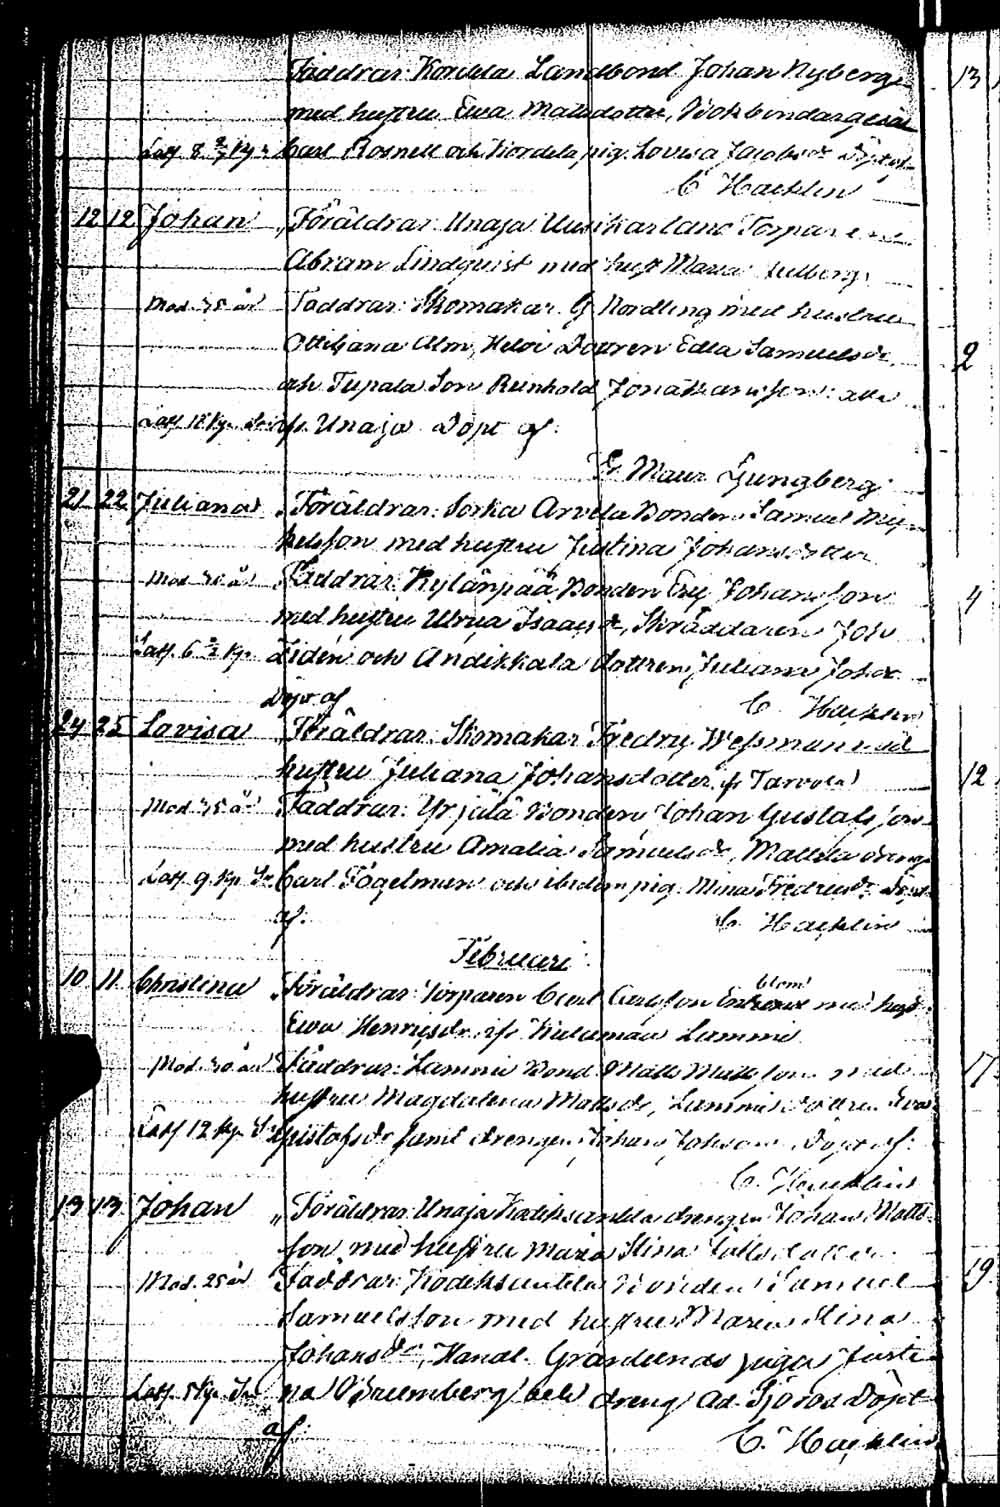 Faddrar: Kordela Landbond. Johan Nyberg
med hustru Ewa Matsdotter, Bokbindarges.
Latf 8 Kp. Carl Rosnell och Kordela pig. Lovisa Jacobsdr Döpt af
C Hacklin
12 12 Johan „Föräldrar: Unaja Uusikartano Torparen
Abram Lindqvist med hust Maria
Mod. 35 år Faddrar: Skomakar G Nordling med hustru
Ottiliana Alm, Heloi Dottren Edla Samuelsdr
och Tupala Son Reinhold Jonatansson: alla
Latf 12 Kp. ifr. Unaja Döpt af:
G. Maur. Ljungberg
21 22 Juliana „Föräldrar: Sorka Arvela Bonden Samuel Mic-
kelsson med hustru Justina Johansdotter
Mod. 30 år Faddrar: Kylänpää Bonden Eric Johansson
med hustru Ulrica Isaacsdr, Skräddaren Joh
Latf. 6 Kp. Lidén och Andikkala dottren Juliana Johdr
Döpt af C. Hacklin
24 25 Lovisa „Föräldrar: Skomakar Fredric Wessman med
hustru Juliana Johansdotter ifr Tarvola
Mod. 35 år Faddrar: Yrjälä Bonden Johan Gustafsson
med hustru Amalia Samuelsdr, Mattila dreng
Latf. 9 Kp Carl Fogelman och ibidem pig. Mina Fredricsdr Döpt
af: C. Hacklin
Februari
10 11 Christina „Föräldrar: Torparen Carl Carlsson med hust
Ewa Henricsdr ifr Lammi
Mod. 30 år Faddrar: Lammi Bond. Matts Mattsson med
hustru Magdalena Mattsdr, Lammi dottren Eva
Latf 12 Kp. Gustafsdr samt drengen Johan Johsson Döpt af:
C. Hacklin
13 13 Johan „Föräldrar: Unaja drengen Johan Matts-
son med hustru Maria Stina
Mod. 25 år Faddrar: Bonden Samuel
Samuelsson med hustru Maria Stina
Johansdr, Handl. Granlunds piga Justi-
Latf. Kp. na Bremberg och dreng Ad. Sjöros Döpt
af: C. Hacklin
13
2
4
12
17
19